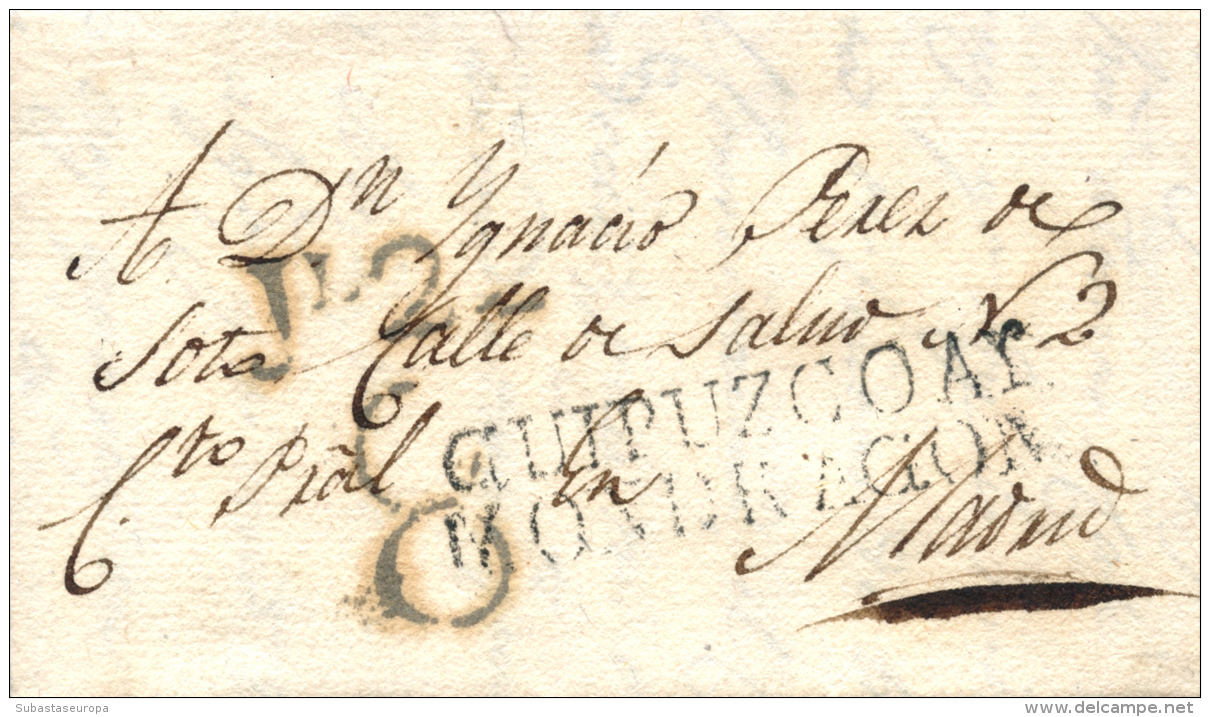 A Dn Ygnacio Perez de
Soto Calle de Salud N 2
Cto Pral En Madrid
GUIPUZCOAY
MONDRAGON
Subastaseuropa
www.delcampe.net